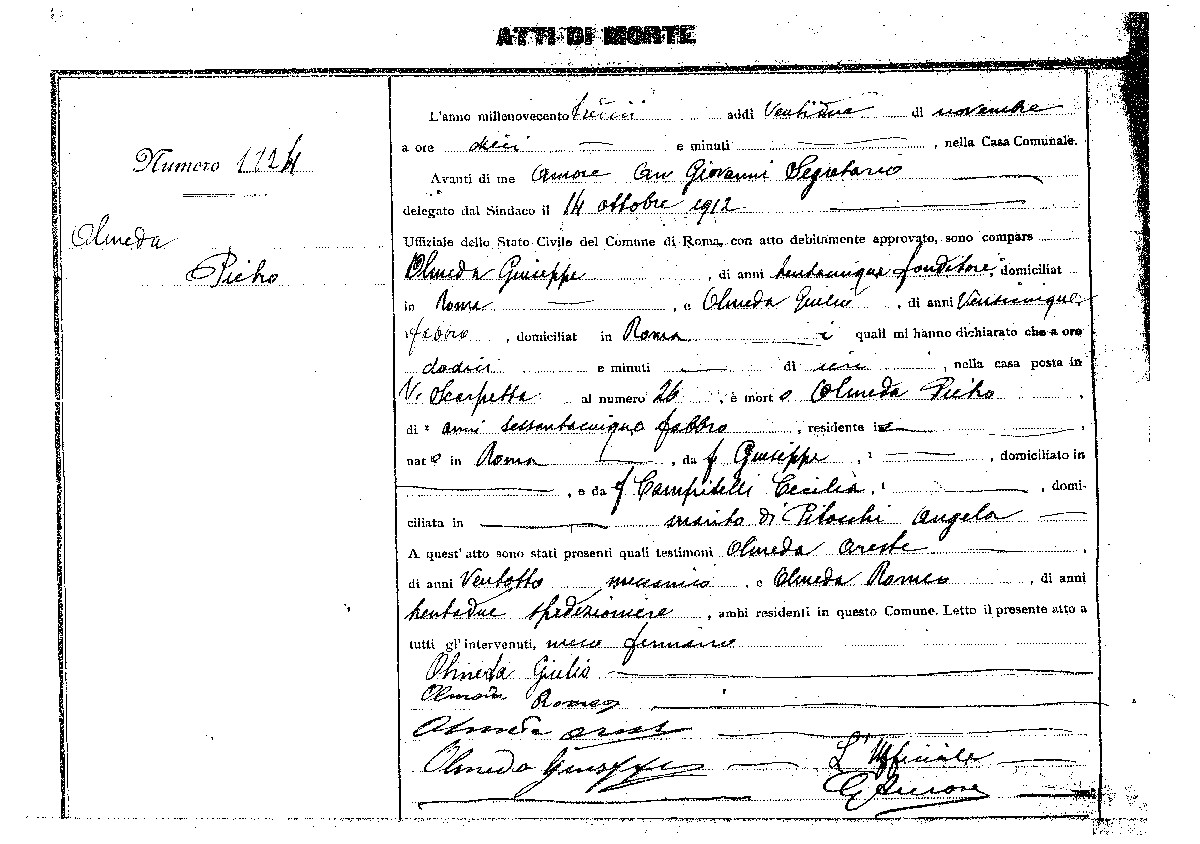 ATTI DI MORTE
Numero 1124
Olmeda
Pietro
L'anno millenovecento tredici addì Ventidue di novembre
a ore dieci e minuti , nella Casa Comunale.
Avanti di me Amore Giovanni Segretario
delegato dal Sindaco il 14 ottobre 1912
Uffiziale dello Stato Civile del Comune di Roma, con atto debitamente approvato, sono compars
Olmeda Giuseppe , di anni trentacinque fonditore, domiciliat
in Roma , e Olmeda Giulio , di anni Venticinque,
fabbro , domiciliat in Roma i quali mi hanno dichiarato che a ore
dodici e minuti di ieri , nella casa posta in
V. Scarpetta al numero 26 , è morto Olmeda Pietro ,
di anni sessantacinque fabbro , residente in ,
nato in Roma , da f Giuseppe , , domiciliato in
, e da f Campitelli Cecilia, , domi-
ciliata in marito di Pitocchi Angela
A quest'atto sono stati presenti quali testimoni Olmeda Oreste ,
di anni Ventotto meccanico , e Olmeda Romeo , di anni
trentadue spedizioniere , ambi residenti in questo Comune. Letto il presente atto a
tutti gl'intervenuti, meco firmano
Olmeda Giulio
Olmeda Romeo
Olmeda Oreste
Olmeda Giuseppe L'Ufficiale
G Amore